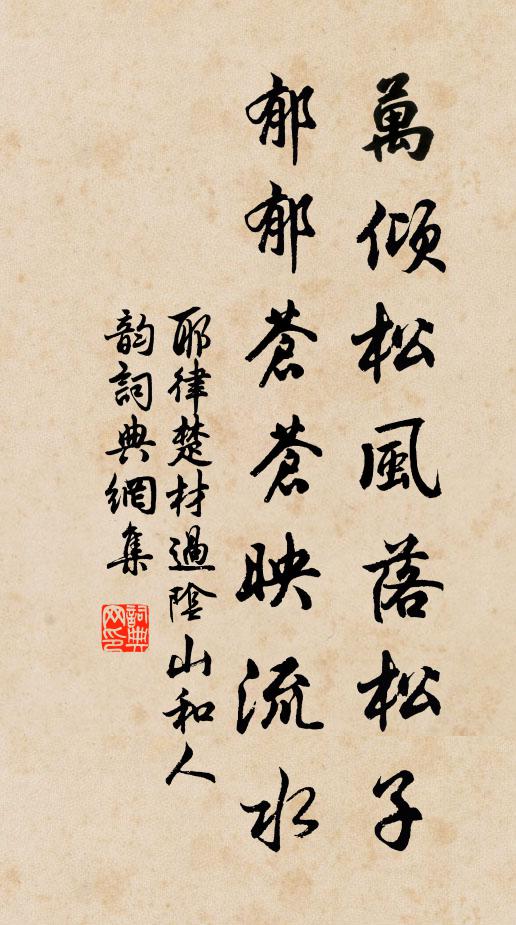 萬傾松風落松子
郁郁蒼蒼映流水
耶律楚材過陰山和人
韵詞典網集
詞典网印